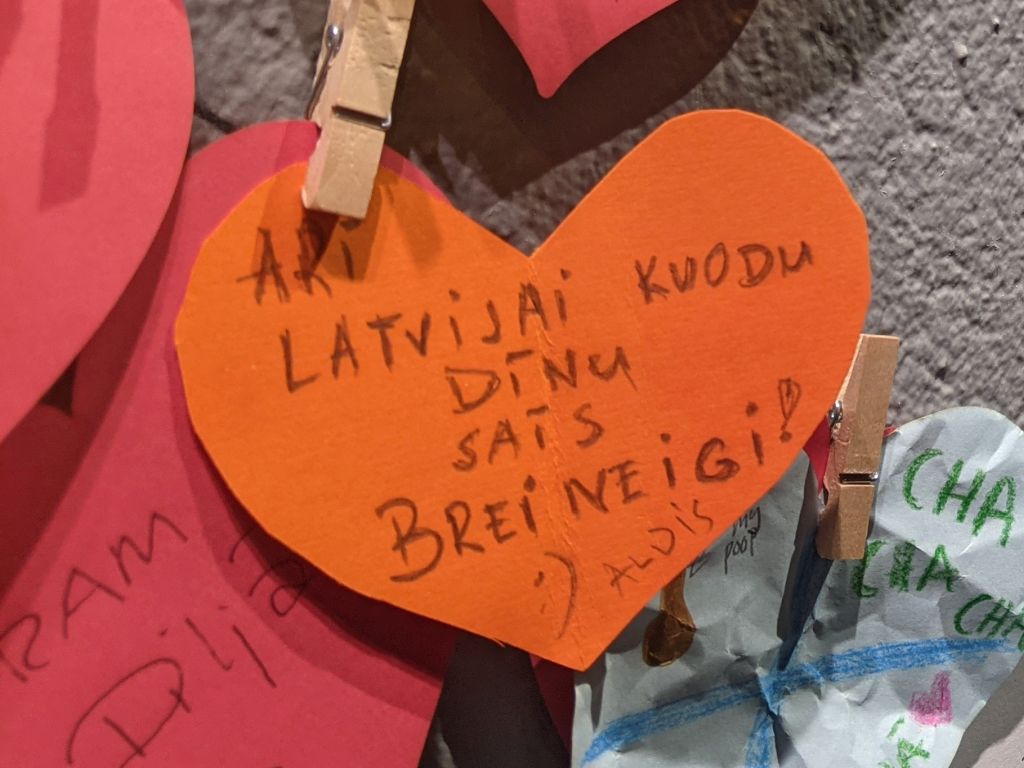 ARĪ
LATVIJAI KUODU
DĪNU
SATS
BREINEIGI!
:) ALDIS
RAM
Dilj
my
poop
CHA
CHA
CHA